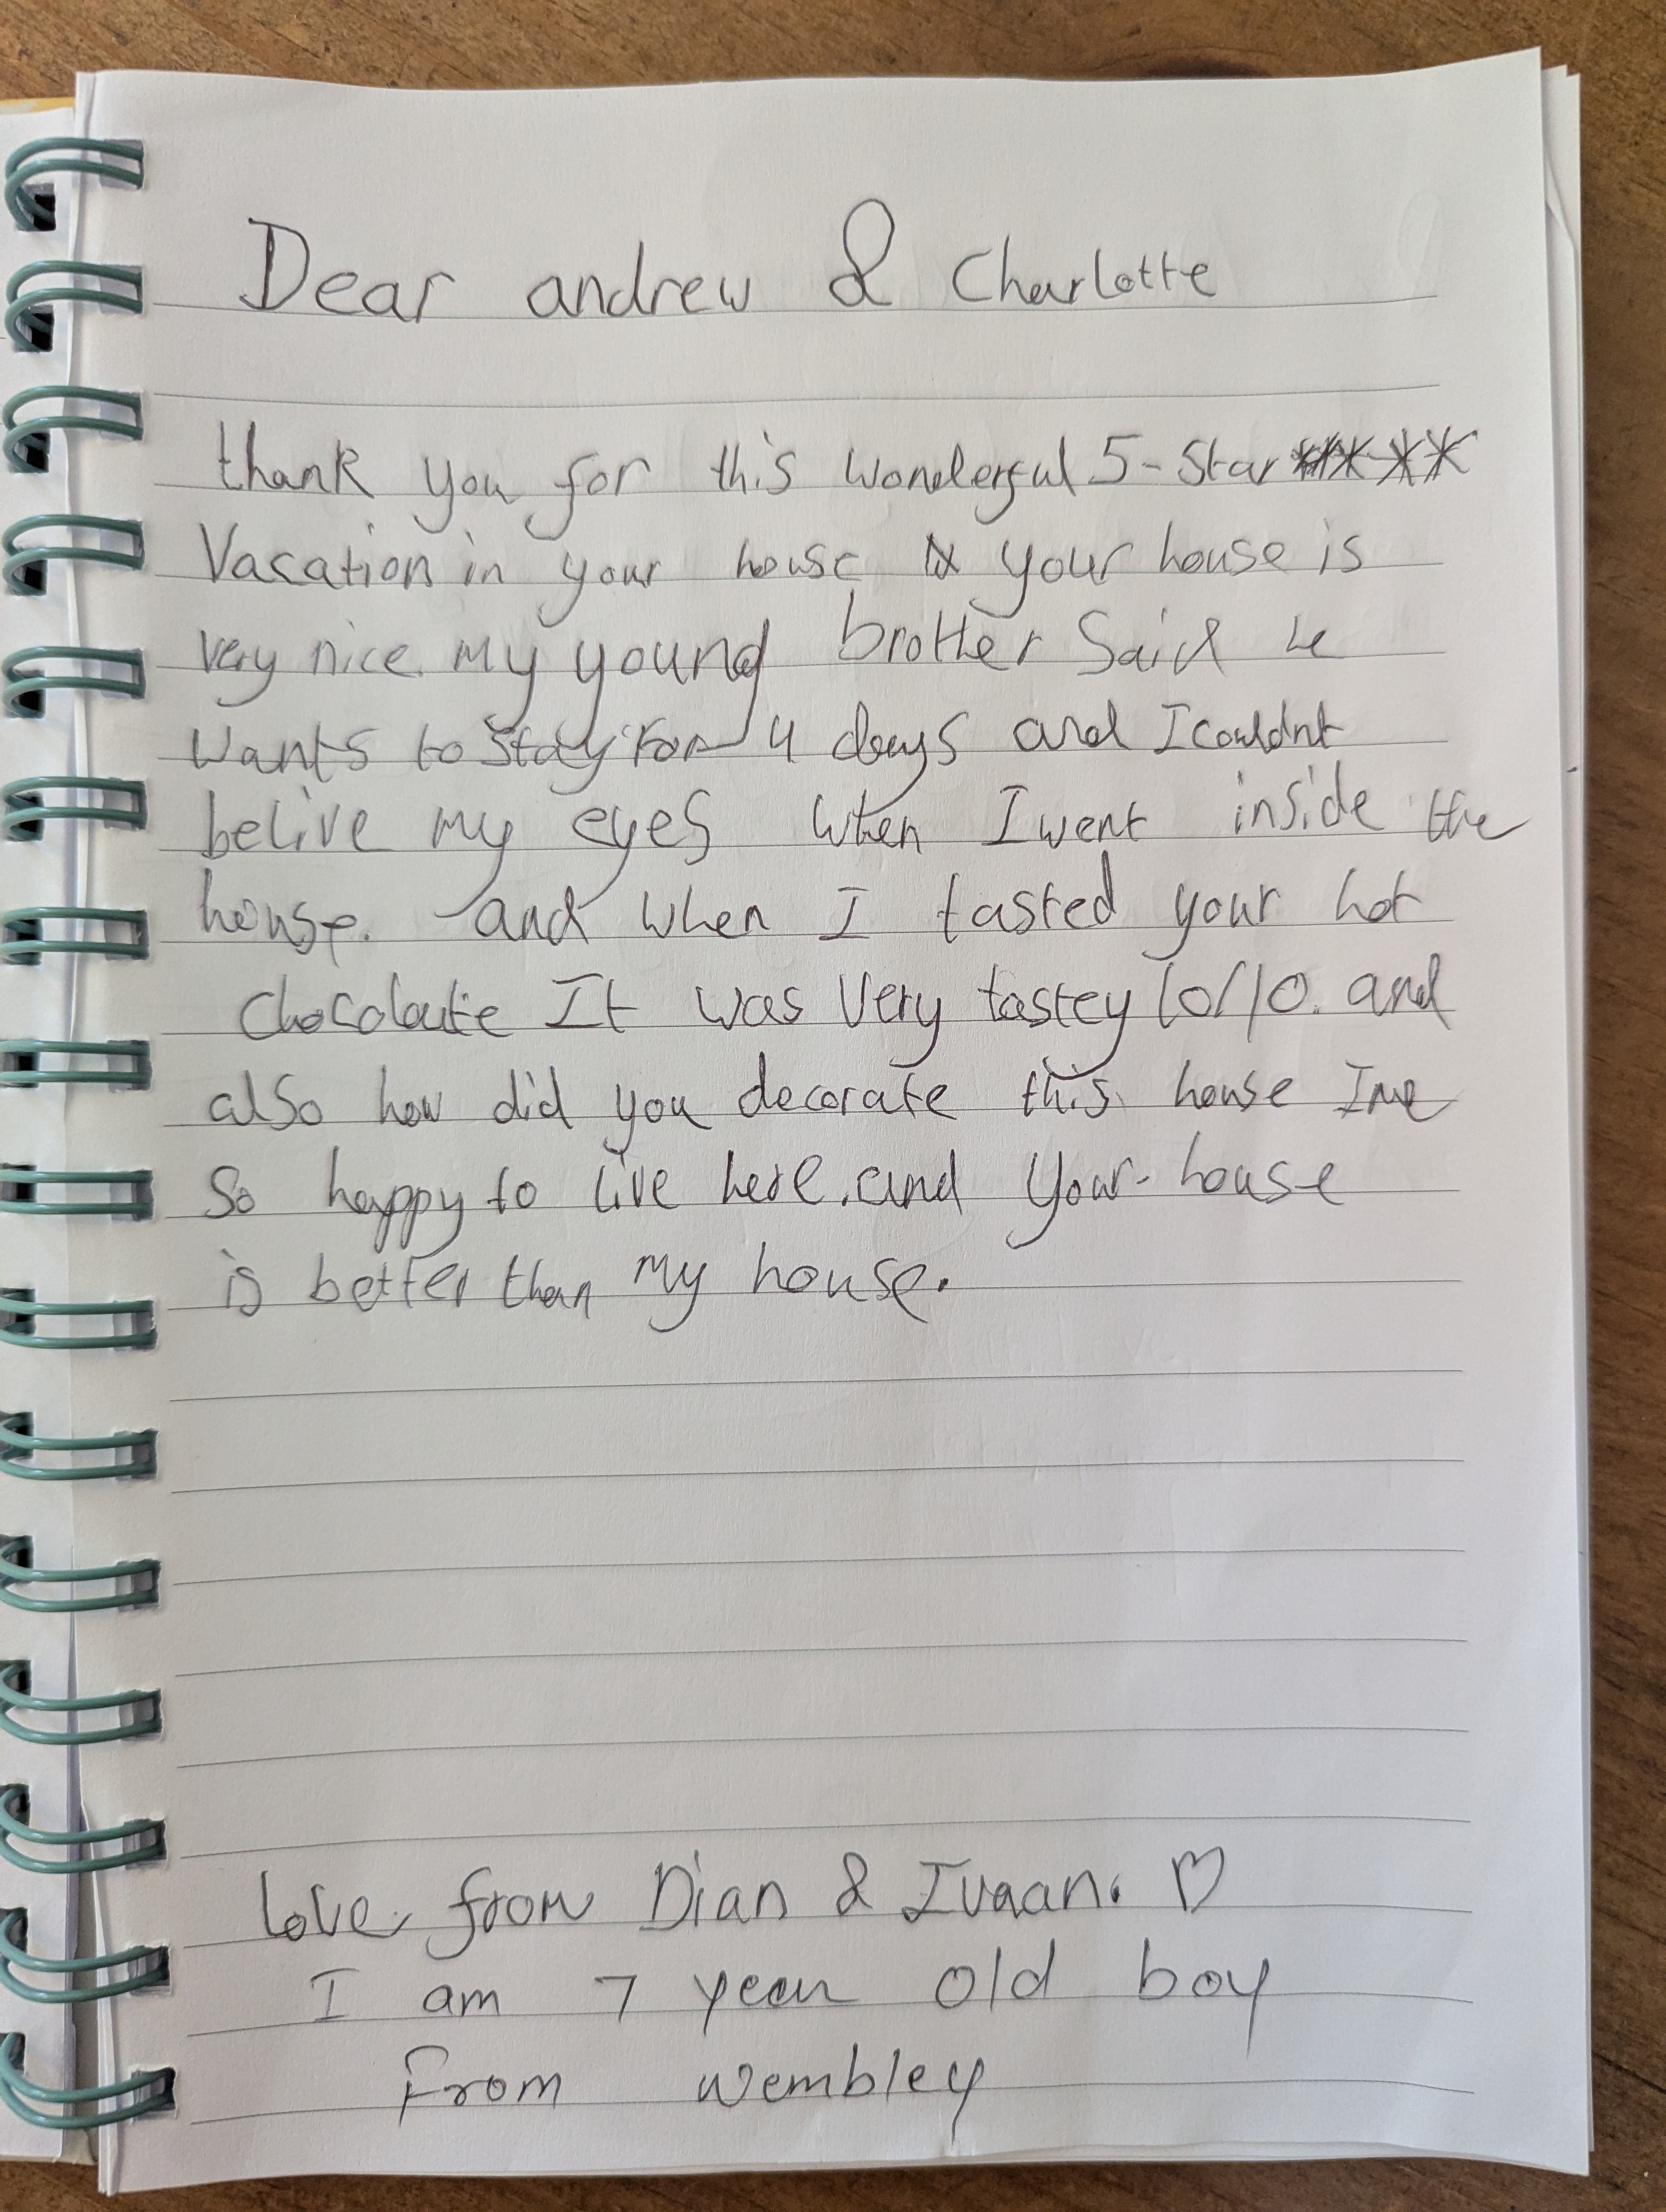 Dear andrew & Charlotte
thank you for this wonderful 5-Star *****
Vacation in your house your house is
very nice. my young brother Said he
wants to stay for 4 days and I couldnt
belive my eyes when I went inside the
house. and when I tasted your hot
chocolate It was very tastey 10/10. and
also how did you decorate this house
so happy to live here. and your house
is better than my house.
love from Dian & Ivaan. ♡
I am 7 year old boy
From wembley